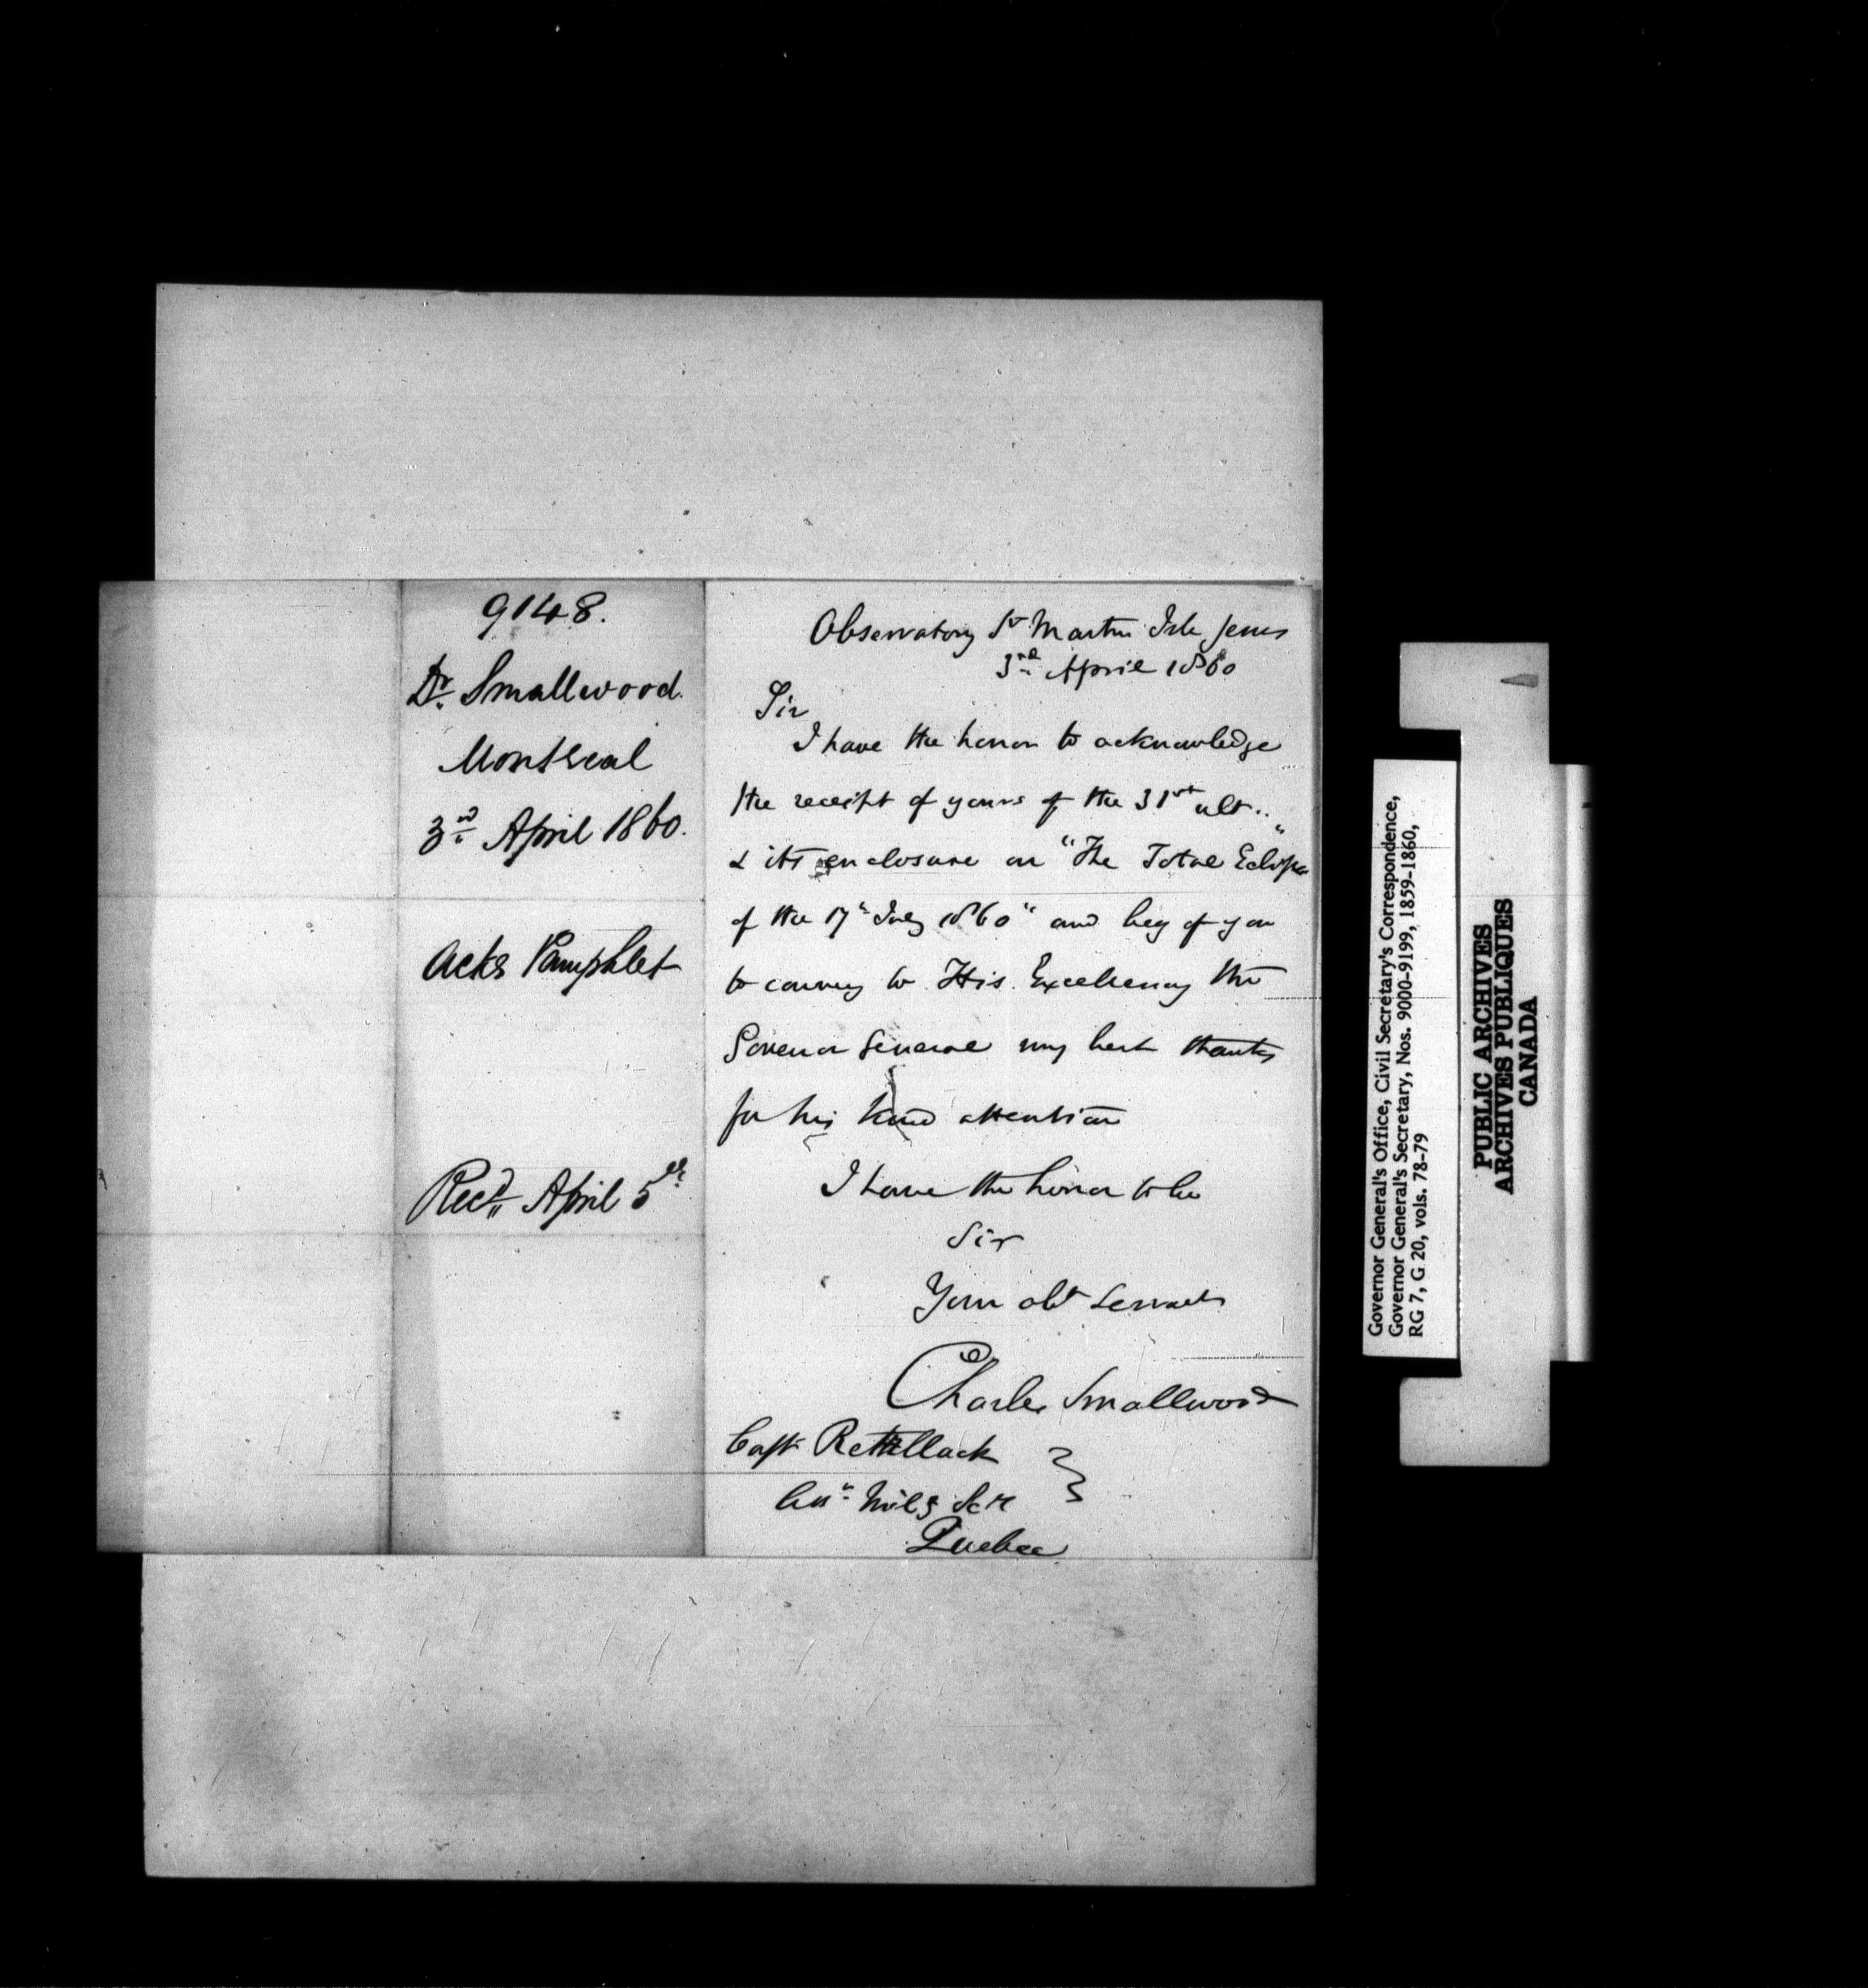 9148.
Dr. Smallwood.
Montreal
3rd April 1860.
Acks Pamphlet
Recd. April 5th
Observatory St Martin Isle Jesus
3rd April 1860
Sir
I have the honor to acknowledge
the receipt of yours of the 31st ult..
& its enclosure on "The Total Eclipse"
of the 17th July 1860" and beg of you
to convey to His Excellency the
Govenor General my best thanks
for his kind attention
I have the honor to be
Sir
Your obt Servant
Charles Smallwood
Capt Retallack
Quebec
Governor General's Office, Civil Secretary's Correspondence,
Governor General's Secretary, Nos. 9000-9199, 1859-1860,
RG 7, G 20, vols. 78-79
PUBLIC ARCHIVES
ARCHIVES PUBLIQUES
CANADA